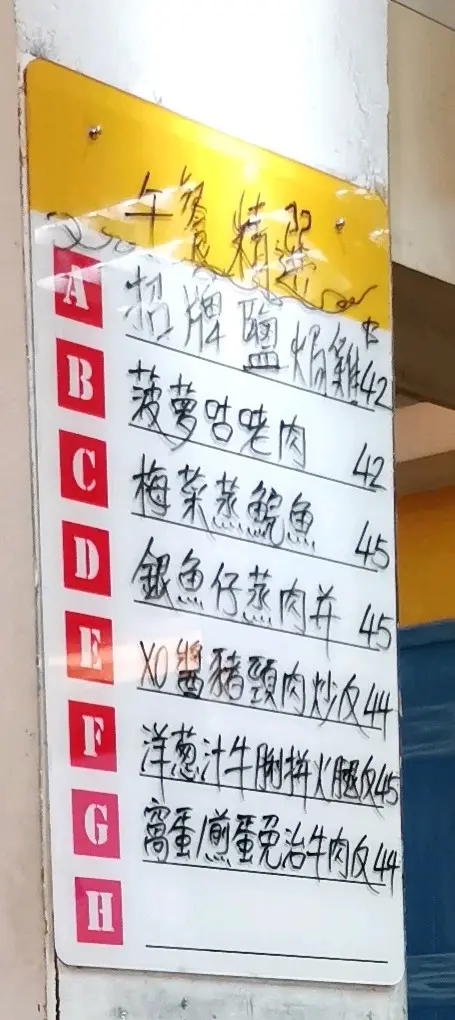 午餐精選
$
A 招牌鹽焗雞 42
B 菠萝咕咾肉 42
C 梅菜蒸鯇魚 45
D 銀魚仔蒸肉并 45
E XO醬豬頸肉炒反 44
F 洋葱汁牛脷拼火腿反 45
G 窩蛋/煎蛋免治牛肉反 44
H